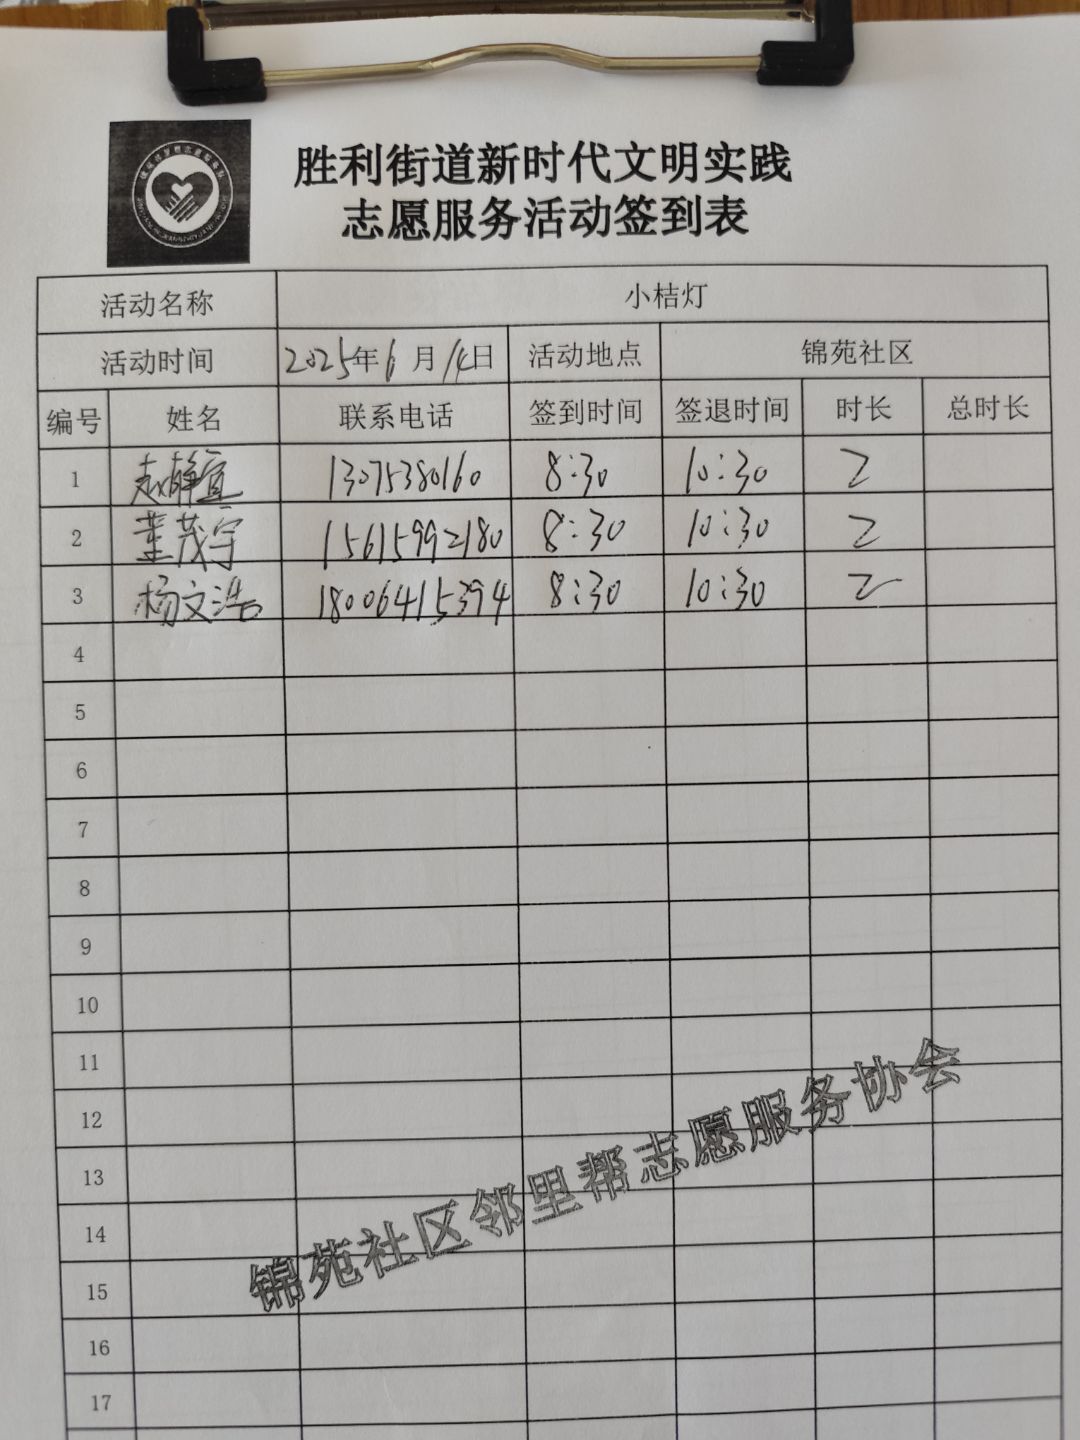 胜利街道新时代文明实践
志愿服务活动签到表
活动名称 小桔灯
活动时间 2025年6月14日 活动地点 锦苑社区
编号 姓名 联系电话 签到时间 签退时间 时长 总时长
1 赵静宜 13075380160 8:30 10:30 2
2 董茂宇 15615992180 8:30 10:30 2
3 杨文浩 18006415394 8:30 10:30 2
4
5
6
7
8
9
10
11
12
13
14
15
16
17
锦苑社区邻里帮志愿服务协会